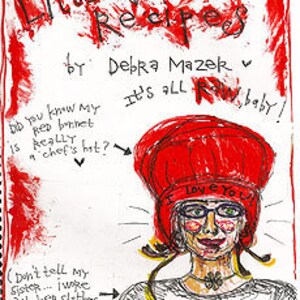 Recipes
by DEBRA MAZEK
It's all RAW, baby!
Did you know my
RED bonnet
is REALLY
a chef's hat?
I love you!
(Don't tell my
sister... I wore